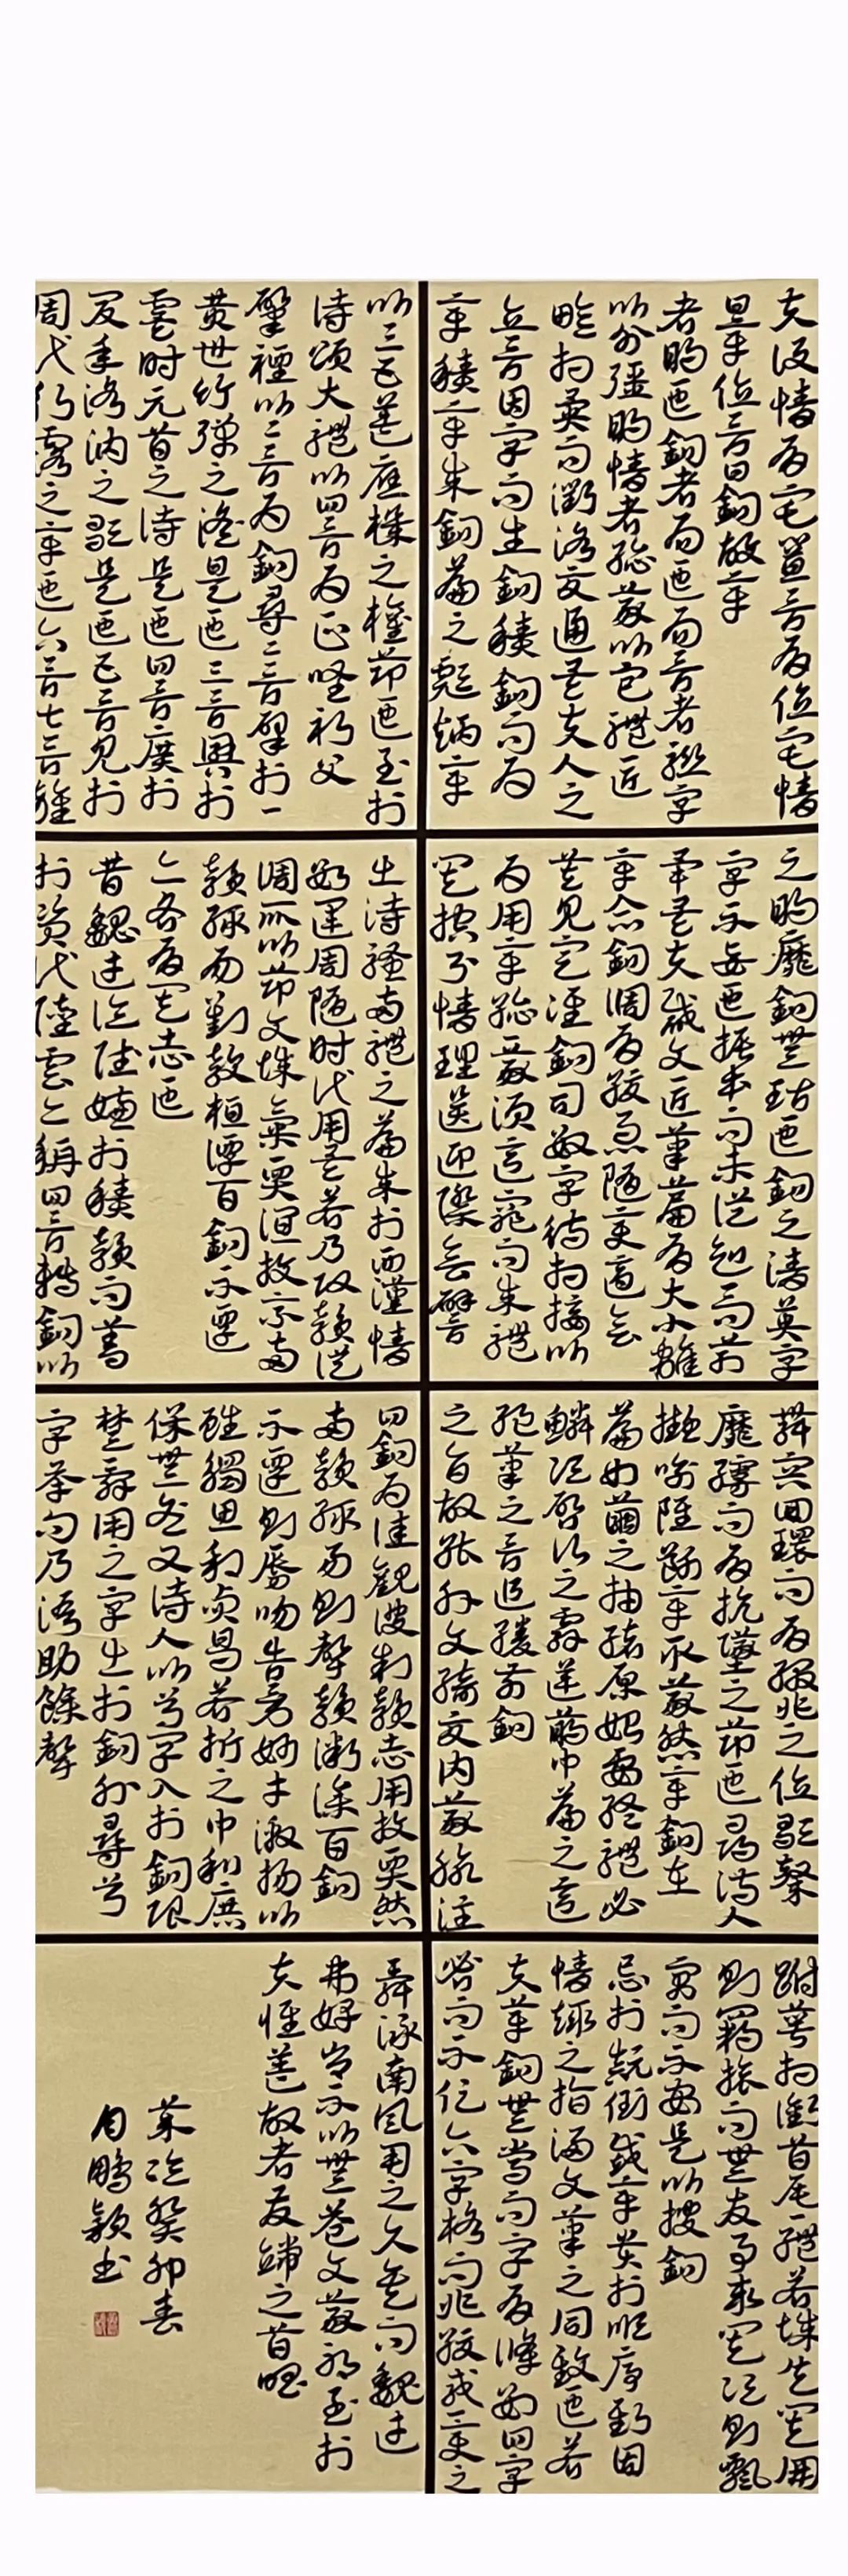 夫设情有宅置言有位宅情
曰章位言曰句故章
者明也句者局也局言者聯字
以分疆明情者總義以包體區
畛相異而衢路交通矣夫人之
立言因字而生句積句而為
章積章成句篇之彪炳章
之明靡句無玷也句之清英字
字不妄也振本而末從知一而萬
畢矣夫裁文匠筆篇有大小離
章合句調有緩急隨變適會
莫見定準句司數字待相接以
為用章總一義須意窮而成體
其控引情理送迎際會譬
舞容回環而有綴兆之位歌聲
靡曼而有抗墜之節也尋詩人
擬喻雖斷章取義然章句在
篇如繭之抽緒原始要終體必
鱗次啟行之辭逆萌中篇之意
絕筆之言追媵前句
之旨故能外文綺交內義脈注
跗萼相銜首尾一體若辭失其朋
則羈旅而無友事乖其次則飄
寓而不安是以搜句
忌於顛倒裁章貴於順序斯固
情趣之指歸文筆之同致也若
夫筆句無常而字有條數四字
密而不促六字格而非緩或變之
以三五蓋應機之權節也至於
詩頌大體以四言為正唯祈父
肇禋以二言為句尋二言肇於
黃世竹彈之謠是也三言興於
虞時元首之詩是也四言廣於
夏年洛汭之歌是也五言見於
周代行露之章也六言七言雜
出詩騷兩體之篇成於西漢情
數運周隨時代用矣若乃改韻從
調所以節文辭氣賈誼枚乘兩
韻輒易劉歆桓譚百句不遷
亦各有其志也
昔魏武論賦嫌於積韻而善
於資代陸雲亦稱四言轉句以
四句為佳觀彼制韻志同枚賈然
兩韻輒易則聲韻微躁百句
不遷則唇吻告勞妙才激揚以
雖觸思利貞曷若折之中和庶
保無咎又詩人以兮字入於句限
楚辭用之字出於句外尋兮
字承句乃語助餘聲
舜詠南風用之久矣而魏武
弗好豈不以無益文義耶至於
夫惟蓋故者發端之首唱
次癸卯春
鵬穎書